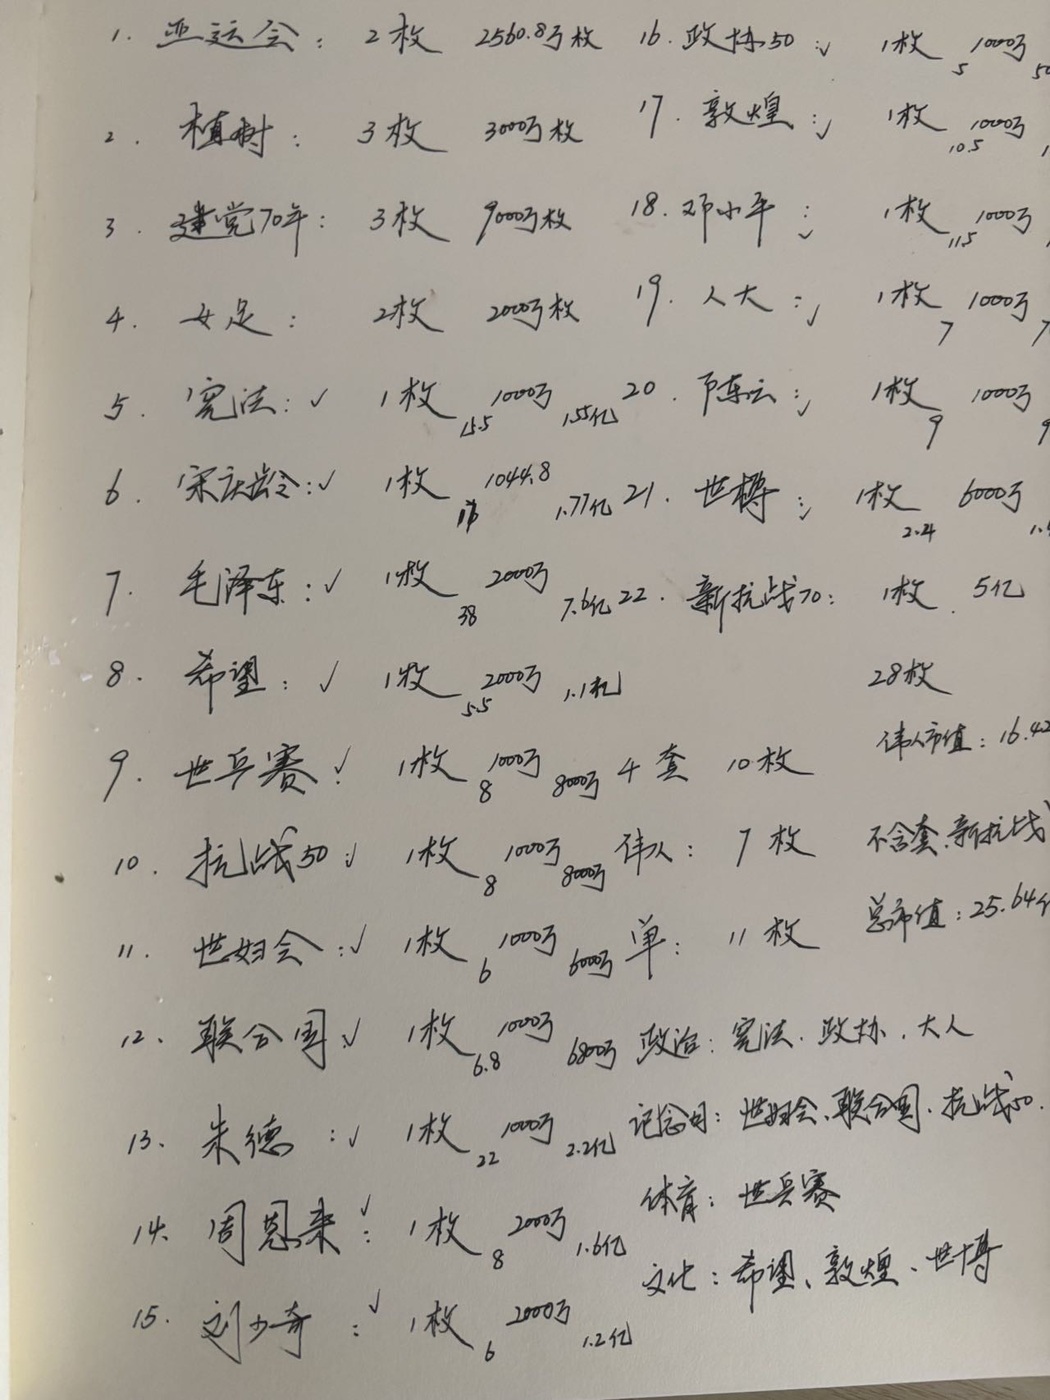 1. 亚运会: 2枚 2560.8万枚
2. 植树: 3枚 3000万枚
3. 建党70年: 3枚 9000万枚
4. 女足: 2枚 2000万枚
5. 宪法:√ 1枚 15.5 1000万 1.55亿
6. 宋庆龄:√ 1枚 1044.8 1.77亿
7. 毛泽东:√ 1枚 38 2000万 7.6亿
8. 希望:√ 1枚 5.5 2000万 1.1亿
9. 世乒赛:√ 1枚 8 1000万 8000万
10. 抗战50:√ 1枚 8 1000万 8000万
11. 世妇会:√ 1枚 6 1000万 6000万
12. 联合国:√ 1枚 6.8 1000万 6800万
13. 朱德:√ 1枚 22 1000万 2.2亿
14. 周恩来:√ 1枚 8 2000万 1.6亿
15. 刘少奇:√ 1枚 6 2000万 1.2亿
16. 政协50:√ 1枚 5 1000万
17. 敦煌:√ 1枚 10.5 1000万
18. 邓小平:√ 1枚 11.5 1000万
19. 人大:√ 1枚 7 1000万 7
20. 陈云:√ 1枚 9 1000万 9
21. 世博:√ 1枚 2.4 6000万
22. 新抗战70: 1枚. 5亿
28枚
伟人市值: 16.42
4套 10枚
伟人: 7枚
不含套、新抗战
单: 11枚
总市值: 25.64亿
政治: 宪法、政协、大人
记念日: 世妇会、联合国、抗战50.
体育: 世乒赛
文化: 希望、敦煌、世博